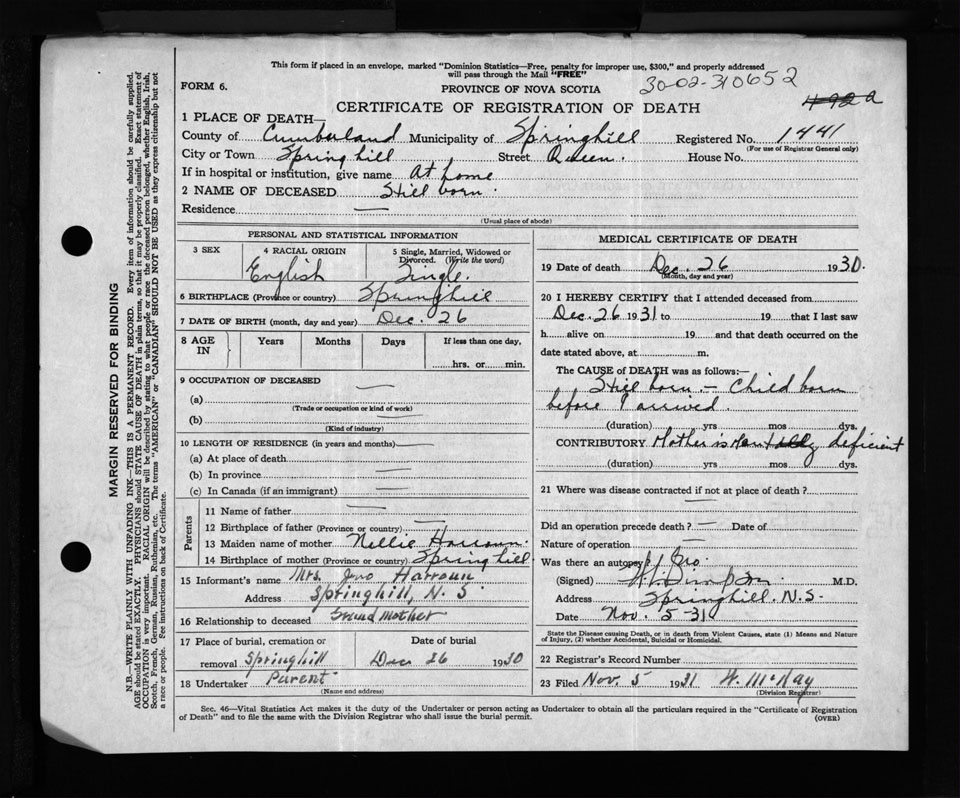 This form if placed in an envelope, marked "Dominion Statistics—Free, penalty for improper use, $300," and properly addressed
will pass through the Mail "FREE"
30-02-310652
FORM 6.
PROVINCE OF NOVA SCOTIA
CERTIFICATE OF REGISTRATION OF DEATH
1 PLACE OF DEATH—
County of Cumberland Municipality of Springhill Registered No. 1441
(For use of Registrar General only)
City or Town Springhill Street Queen. House No.
If in hospital or institution, give name At home
2 NAME OF DECEASED Still born.
Residence —
(Usual place of abode)
PERSONAL AND STATISTICAL INFORMATION
3 SEX
4 RACIAL ORIGIN
English
5 Single, Married, Widowed or Divorced. (Write the word)
Single.
6 BIRTHPLACE (Province or country) Springhill
7 DATE OF BIRTH (month, day and year) Dec. 26
8 AGE IN
Years
Months
Days
If less than one day,
hrs. or min.
9 OCCUPATION OF DECEASED —
(a)
(Trade or occupation or kind of work)
(b) —
(Kind of industry)
10 LENGTH OF RESIDENCE (in years and months) —
(a) At place of death —
(b) In province —
(c) In Canada (if an immigrant) —
Parents
11 Name of father —
12 Birthplace of father (Province or country) —
13 Maiden name of mother Nellie Harroun.
14 Birthplace of mother (Province or country) Springhill
15 Informant's name Mrs. Jno Harroun
Address Springhill, N.S.
16 Relationship to deceased Grand Mother
17 Place of burial, cremation or
removal Springhill
Date of burial
Dec 26 1930
18 Undertaker Parent
(Name and address)
MEDICAL CERTIFICATE OF DEATH
19 Date of death Dec. 26 1930.
(Month, day and year)
20 I HEREBY CERTIFY that I attended deceased from
Dec. 26 1931 to 19 that I last saw
h alive on 19 and that death occurred on the
date stated above, at m.
The CAUSE of DEATH was as follows:—
Still born. — Child born
before I arrived.
(duration) yrs mos dys.
CONTRIBUTORY Mother is Mentally deficient
(duration) yrs mos dys.
21 Where was disease contracted if not at place of death?
—
Did an operation precede death? — Date of
Nature of operation —
Was there an autopsy? No
(Signed) M.D.
Address Springhill. N.S.
Date Nov. 5-31
State the Disease causing Death, or in death from Violent Causes, state (1) Means and Nature
of Injury, (2) whether Accidental, Suicidal or Homicidal.
22 Registrar's Record Number
23 Filed Nov. 5 1931 W. McKay
(Division Registrar)
Sec. 46—Vital Statistics Act makes it the duty of the Undertaker or person acting as Undertaker to obtain all the particulars required in the "Certificate of Registration
of Death" and to file the same with the Division Registrar who shall issue the burial permit.
(OVER)
MARGIN RESERVED FOR BINDING
N.B.—WRITE PLAINLY WITH UNFADING INK—THIS IS A PERMANENT RECORD. Every item of information should be carefully supplied.
AGE should be stated EXACTLY. PHYSICIANS should STATE CAUSE OF DEATH in plain terms, so that it may be properly classified. Exact statement of
OCCUPATION is very important. RACIAL ORIGIN will be described by stating to what people or race the deceased person belonged, whether English, Irish,
Scotch, French, German, Russian, Ruthenian, etc. The terms "AMERICAN" or "CANADIAN" SHOULD NOT BE USED as they express citizenship but not
a race or people. Fee instructions on back of Certificate.